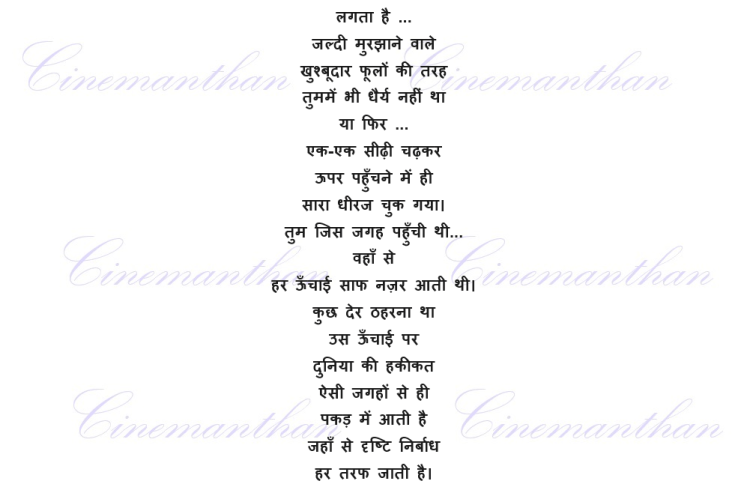 लगता है ...
जल्दी मुरझाने वाले
खुश्बूदार फूलों की तरह
Cinemanthan Cinemanthan
तुममें भी धैर्य नहीं था
या फिर ...
एक-एक सीढ़ी चढ़कर
ऊपर पहुँचने में ही
सारा धीरज चुक गया।
तुम जिस जगह पहुँची थी...
वहाँ से
Cinemanthan Cinemanthan
हर ऊँचाई साफ नज़र आती थी।
कुछ देर ठहरना था
उस ऊँचाई पर
दुनिया की हकीकत
ऐसी जगहों से ही
पकड़ में आती है
Cinemanthan Cinemanthan
जहाँ से दृष्टि निर्बाध
हर तरफ जाती है।